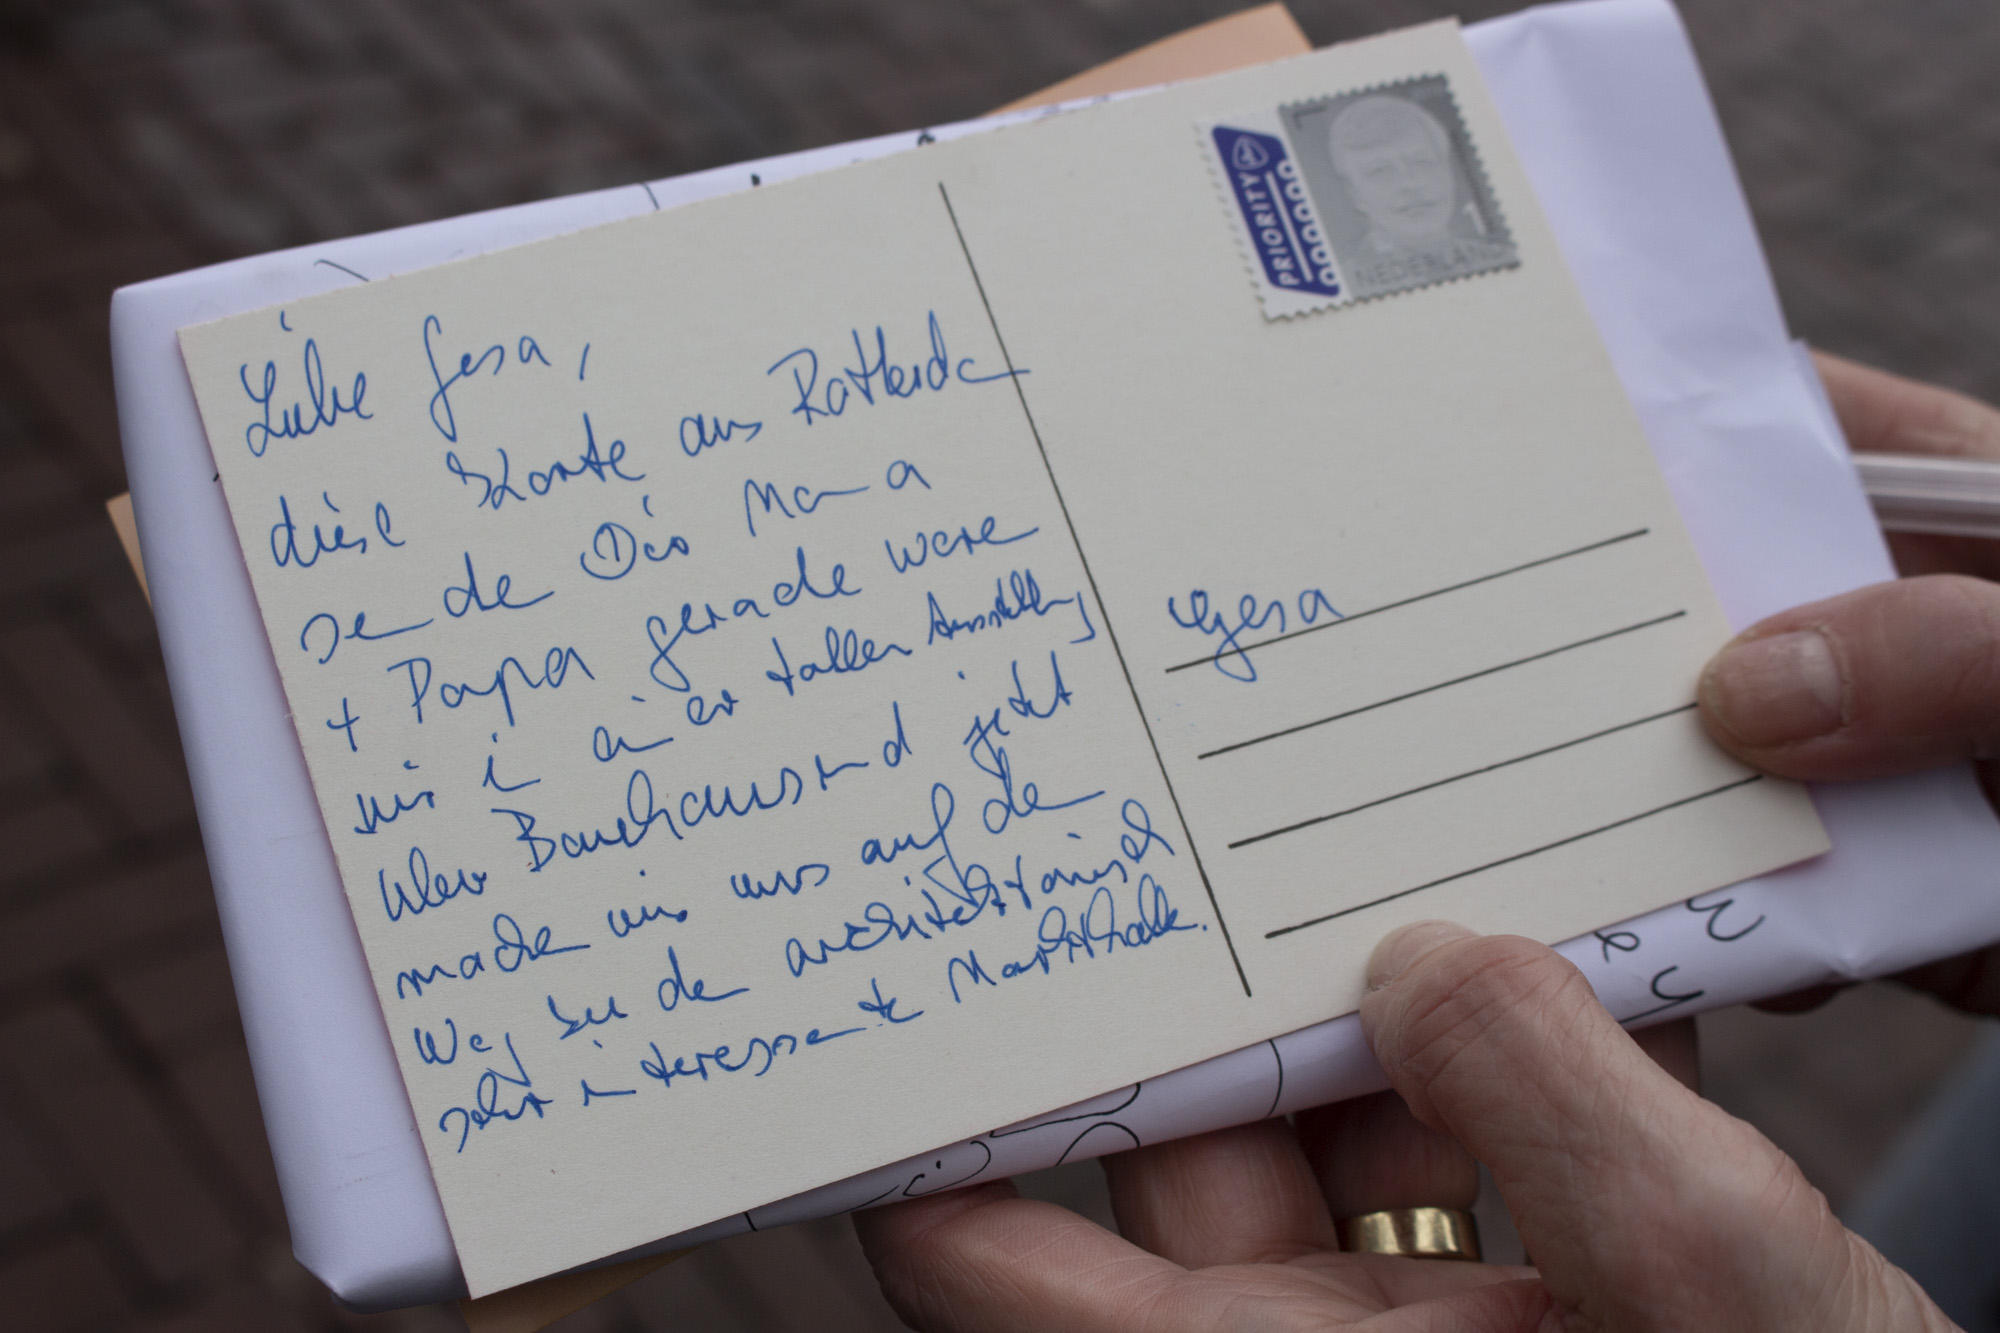 Liebe Gesa,
diese Karte aus Rotterda
sende Dir Mama
+ Papa gerade waren
wir in einer tollen Ausstellung
über Bauhaus und jetzt
machen wir uns auf den
Weg zu der architektonisch
sehr interessante Markthalle.
PRIORITY
1
NEDERLAND
Gesa